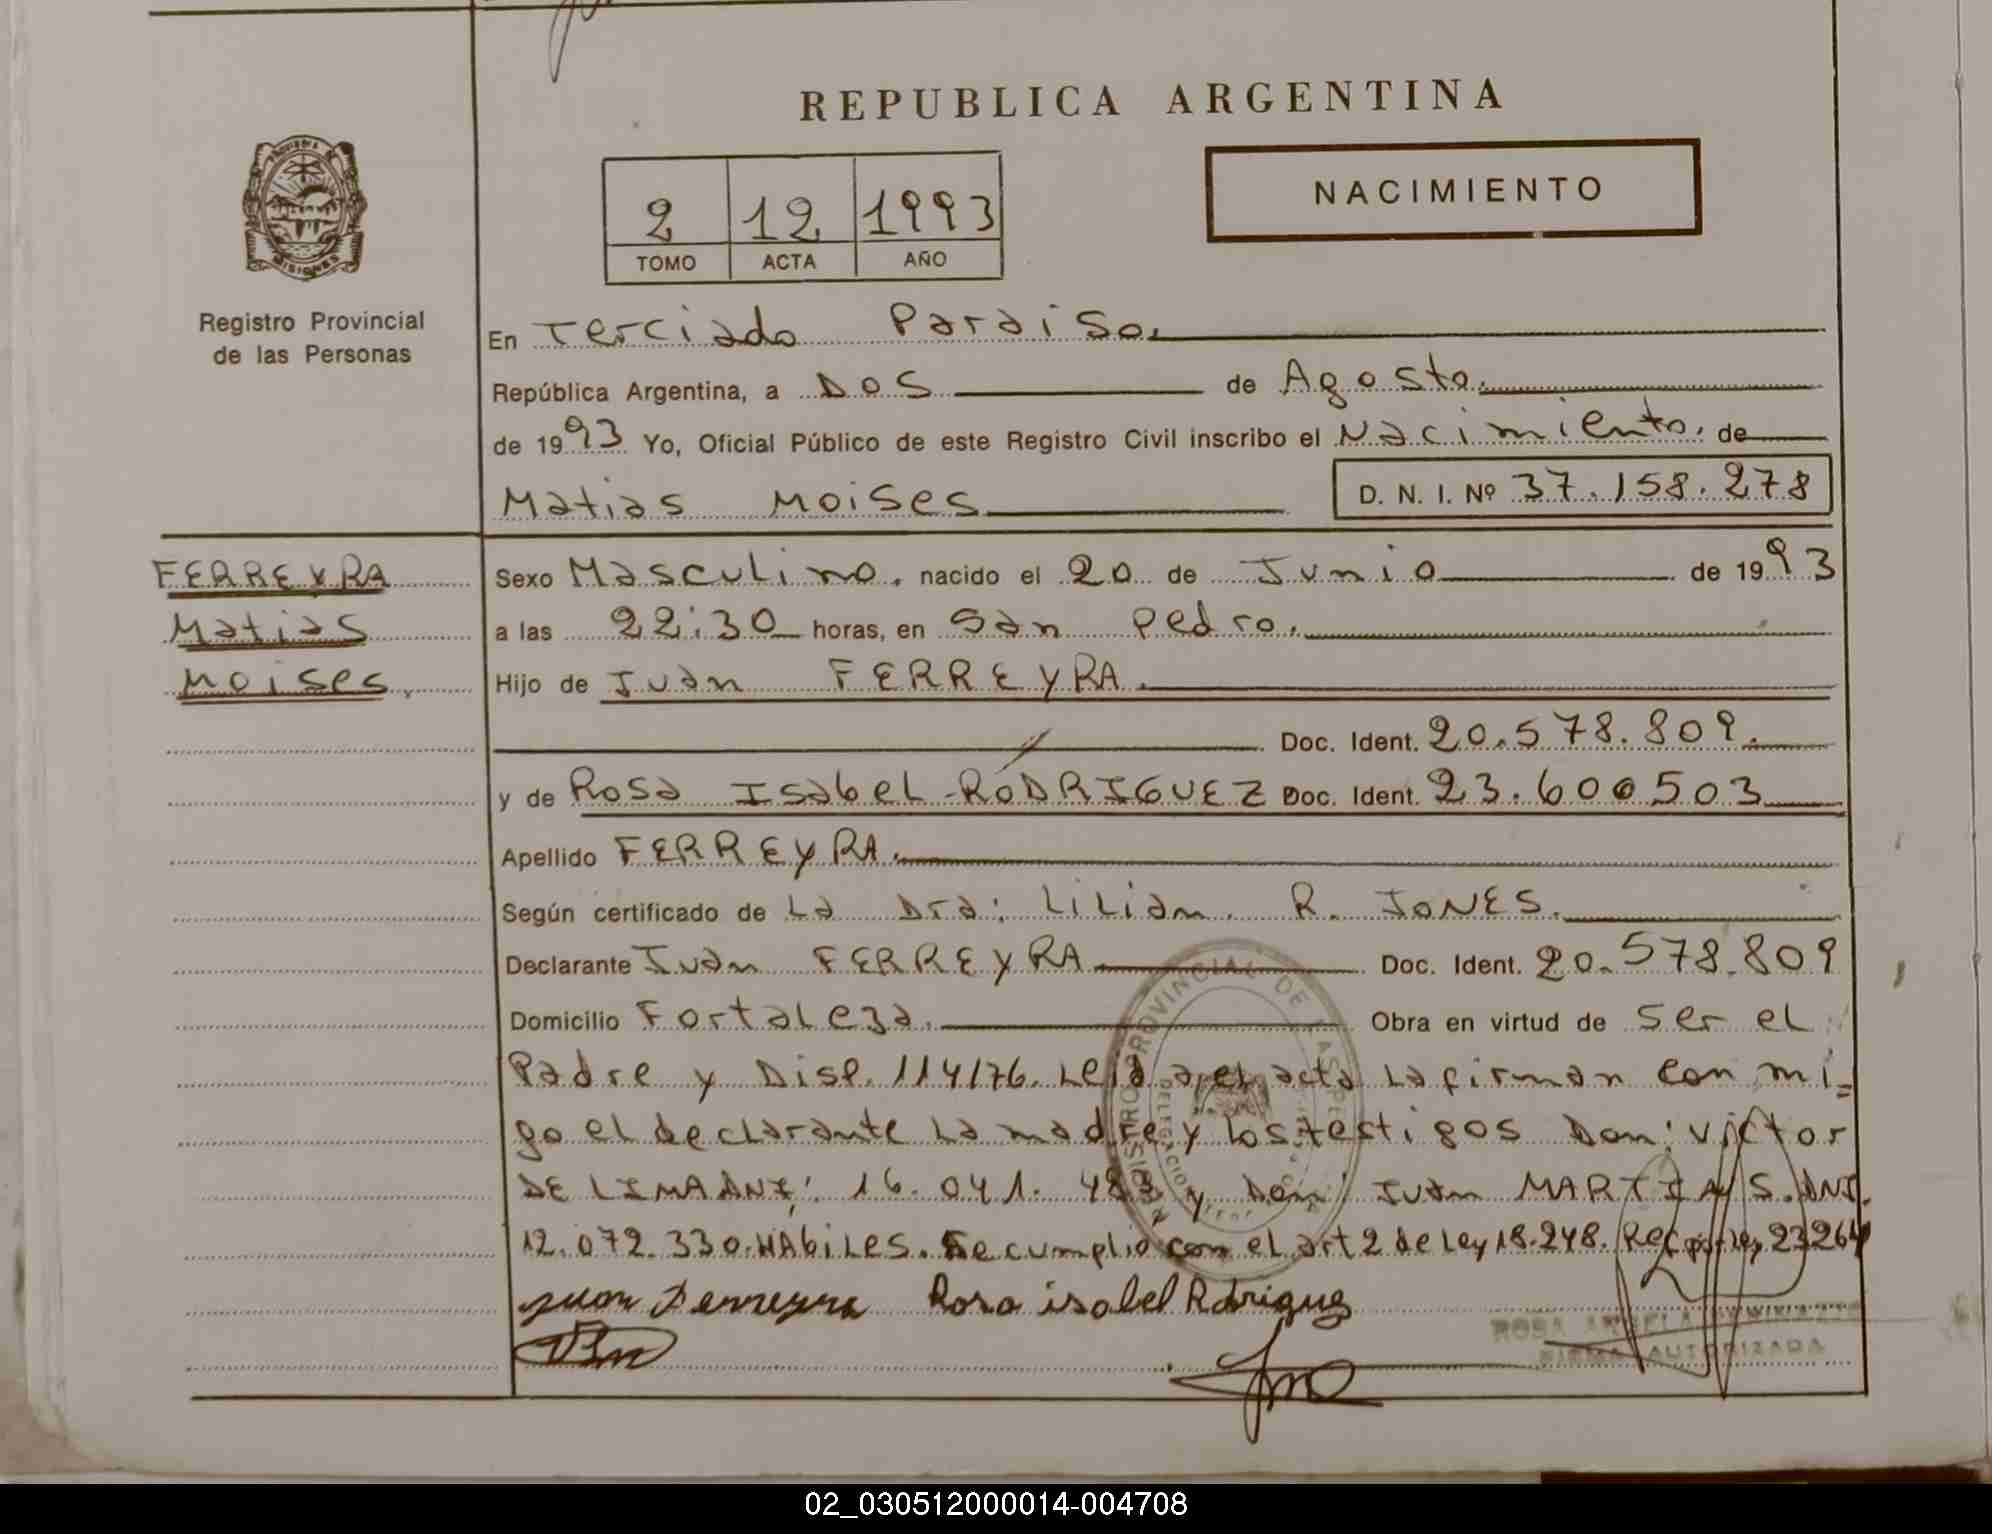 REPUBLICA ARGENTINA
NACIMIENTO
2 12 1993
TOMO ACTA AÑO
PROVINCIA DE
MISIONES
Registro Provincial
de las Personas
En Terciado Paraiso.
República Argentina, a Dos de Agosto.
de 1993 Yo, Oficial Público de este Registro Civil inscribo el Nacimiento. de
Matias Moises D. N. I. Nº 37.158.278
FERREYRA
Matias
Moises.
Sexo Masculino. nacido el 20 de Junio de 1993
a las 22:30 horas, en San Pedro.
Hijo de Juan FERREYRA.
Doc. Ident. 20.578.809.
y de Rosa Isabel RODRIGUEZ Doc. Ident. 23.600503
Apellido FERREYRA.
Según certificado de La Dra: Lilian. R. JONES.
Declarante Juan FERREYRA Doc. Ident. 20.578.809
Domicilio Fortaleza. Obra en virtud de ser el
Padre y Disp. 114/76. Leida el acta La firman con mi=
go el declarante La madre y Los testigos Don: Victor
DE LIMA DNI: 16.041.483 y Don: Juan MARTINS. DNI.
12.072.330. HAbiLes. Se cumplio con el art 2 de Ley 18.248. 23264
Juan Ferreyra Rosa isabel Rodriguez
ROSA
FIRMA AUTORIZADA
REGISTRO PROVINCIAL DE LAS PERSONAS
DELEGACION
02_030512000014-004708